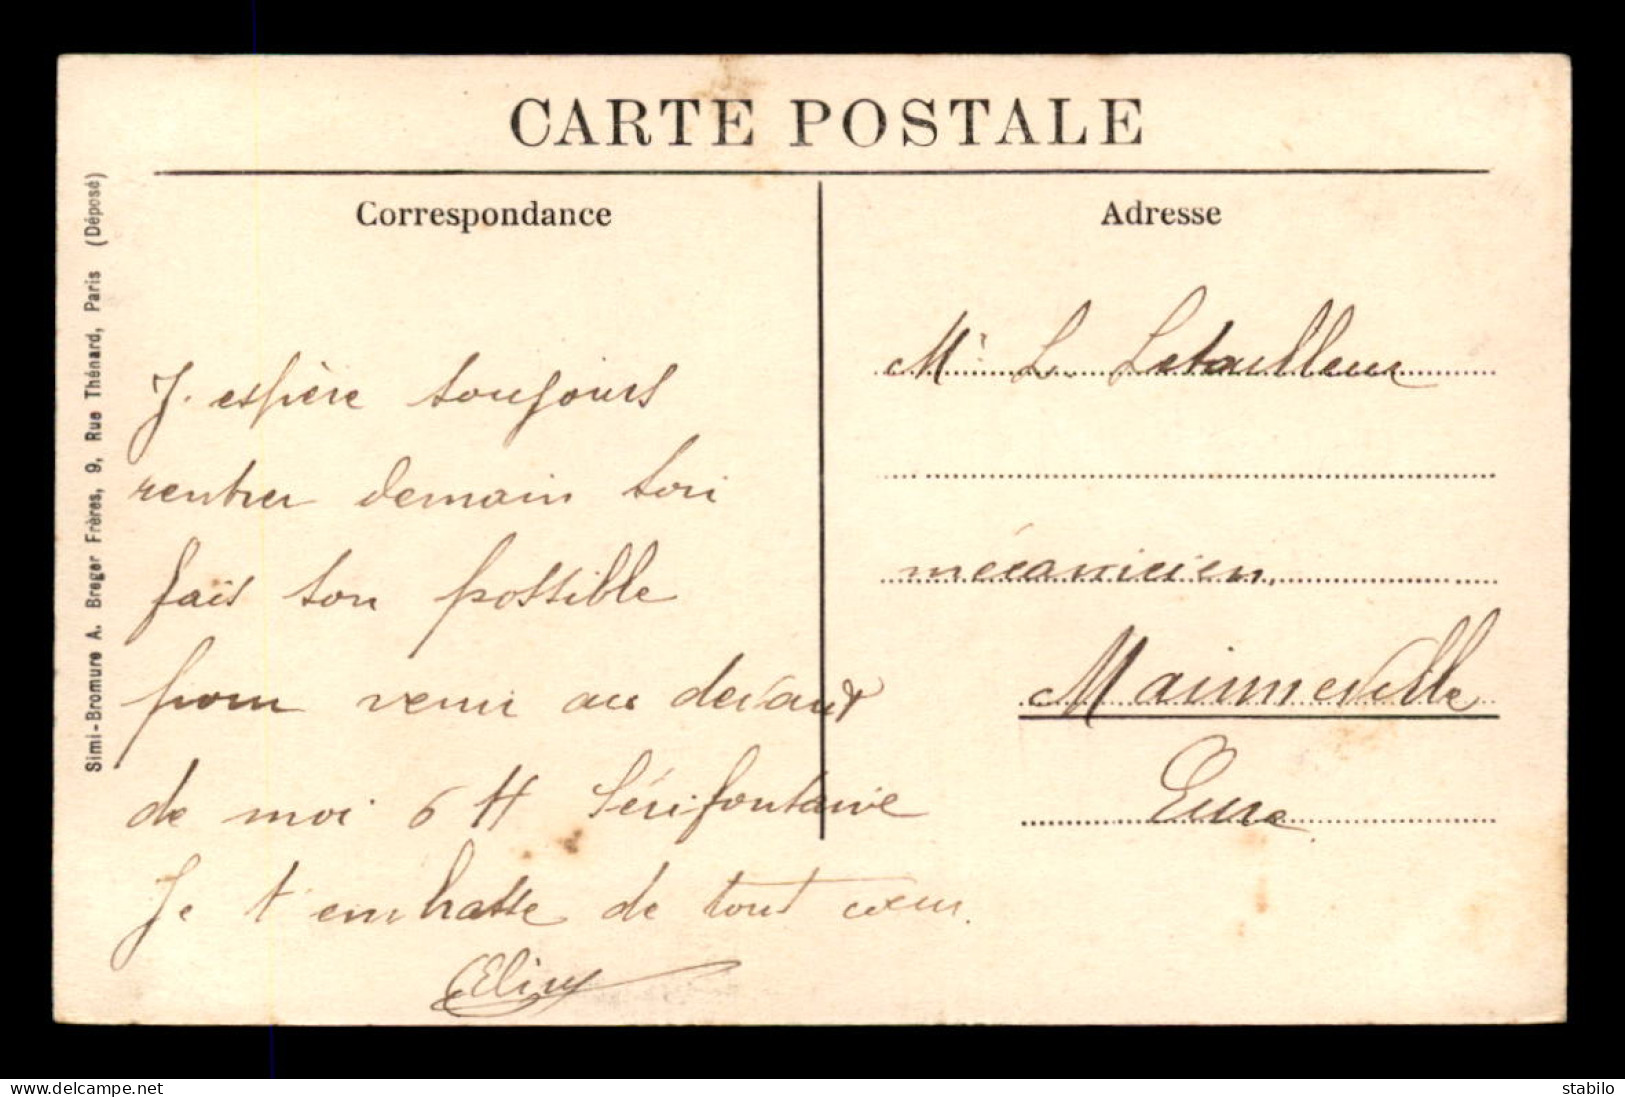 CARTE POSTALE
Correspondance
J. espère toujours
rentrer demain soir
fais ton possible
pour venir au devant
de moi 6 H Sérifontaine
Je t embrasse de tout cœur.
Adresse
Mr L. Letailleur
mécanicien,
Mainneville
Eure
Simi-Bromure A. Breger Frères, 9, Rue Thénard, Paris (Déposé)
delcampe.net
stabilo